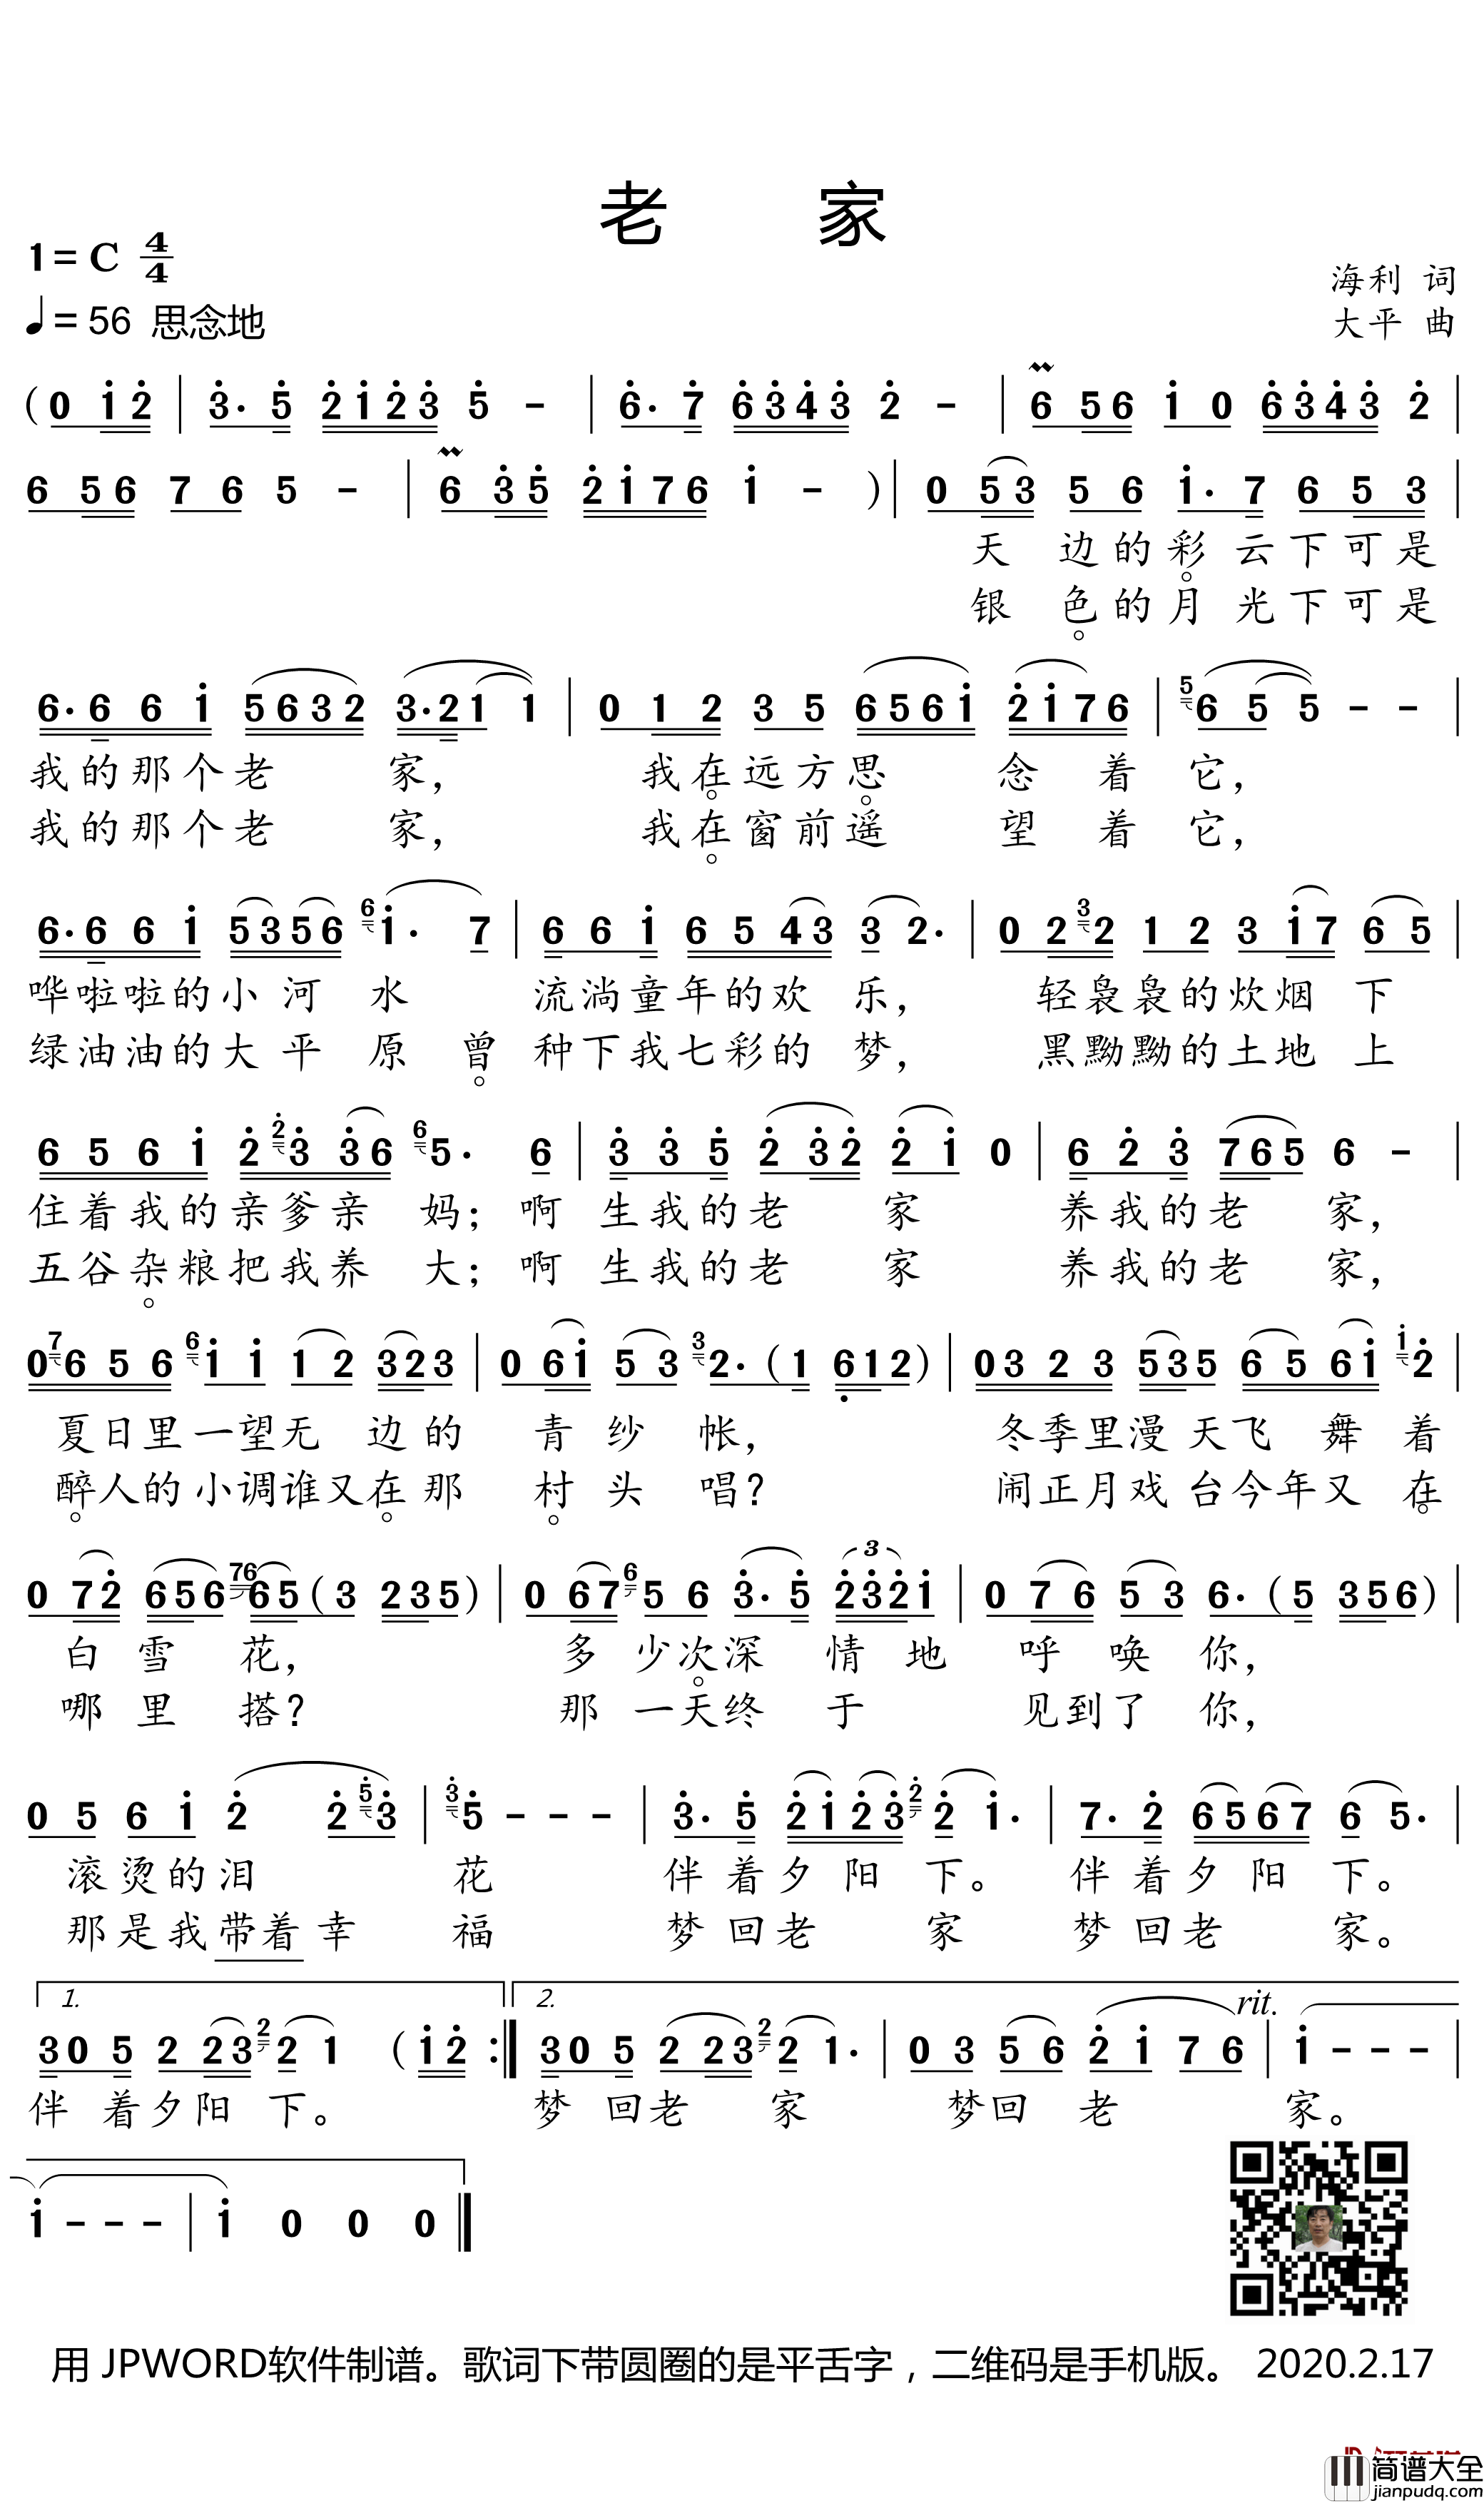 老 家
1=C 4/4
♩=56 思念地
海利 词
大平 曲
(0 1̇2̇ | 3̇. 5̇ 2̇1̇2̇3̇ 5̇ - | 6̇. 7̇ 6̇3̇4̇3̇ 2̇ - | 6 56 1̇ 0 6̇3̇4̇3̇ 2̇ |
6 56 7 6 5 - | 6 3̇5̇ 2̇1̇76 1̇ - ) | 0 53 5 6 1̇. 7 6 5 3 |
天 边的彩 云下可是
银 色的月 光下可是
6. 6 6 1̇ 5632 3.21 1 | 0 1 2 3 5 6561̇ 2̇1̇76 | 5 6 5 5 - - |
我的那个老 家, 我在远方思 念 着 它,
我的那个老 家, 我在窗前遥 望 着 它,
6. 6 6 1̇ 5356 6 1̇. 7 | 6 6 1̇ 6 5 43 3 2. | 0 2 3 2 1 2 3 1̇7 6 5 |
哗啦啦的小河 水 流淌童年的欢 乐, 轻袅袅的炊烟 下
绿油油的大平 原 曾 种下我七彩的 梦, 黑黝黝的土地 上
6 5 6 1̇ 2̇ 2̇ 3̇ 3̇6 6 5. 6 | 3̇ 3̇ 5̇ 2̇ 3̇2̇ 2̇ 1̇ 0 | 6̇ 2̇ 3̇ 765 6 - |
住着我的亲爹亲 妈; 啊 生我的老 家 养我的老 家,
五谷杂粮把我养 大; 啊 生我的老 家 养我的老 家,
0 7 6 5 6 6 1̇ 1̇ 1 2 323 | 0 61̇ 5 3 3 2. (1 6̣12) | 03 2 3 535 6 5 61̇ 1̇ 2̇ |
夏日里一望无 边的 青 纱 帐, 冬季里漫天飞 舞着
醉人的小调谁又在那 村 头 唱? 闹正月戏台今年又 在
0 72̇ 656 76 65 (3 235) | 0 67 6 5 6 3̇. 5̇ 3 2̇3̇2̇1̇ | 0 7 6 5 3 6. (5 356) |
白 雪 花, 多 少次深 情 地 呼 唤 你,
哪 里 搭? 那 一天终 于 见到了 你,
0 5 6 1̇ 2̇ 2̇ 5̇ 3̇ | 3̇ 5̇ - - - | 3̇. 5̇ 2̇1̇2̇3̇ 2̇ 2̇ 1̇. | 7. 2̇ 6567 6 5. |
滚 烫的泪 花 伴 着夕 阳 下。 伴 着夕 阳 下。
那是我带着幸 福 梦 回老 家 梦 回老 家。
1. 2. rit.
30 5 2 23 2 2 1 (1̇2̇ :|| 30 5 2 23 2 2 1. | 0 3 5 6 2̇ 1̇ 7 6 | 1̇ - - - |
伴 着夕阳 下。 梦 回老 家 梦回 老 家。
1̇ - - - | 1̇ 0 0 0 ||
用 JPWORD软件制谱。歌词下带圆圈的是平舌字，二维码是手机版。 2020.2.17
简谱大全
jianpudq.com